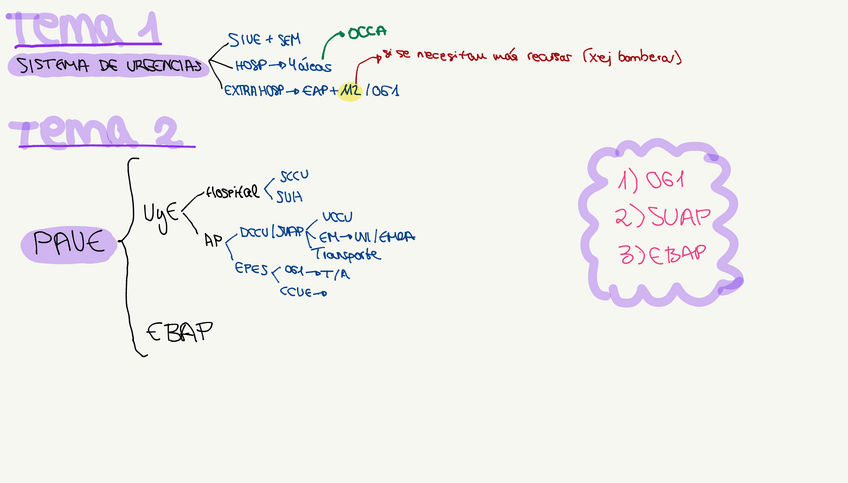 Tema 1
SISTEMA DE URGENCIAS
SIUE + SEM
HOSP → 4 áreas
OCCA
EXTRAHOSP → EAP + 112 / 061
si se necesitan más recursos (xej bomberos)
Tema 2
PAUE
UyE
Hospital
SCCU
SUH
AP
DCCU / SUAP
UCCU
EM → UVI / EMCA
Transporte
EPES
061 → T/A
CCUE →
EBAP
1) 061
2) SUAP
3) EBAP